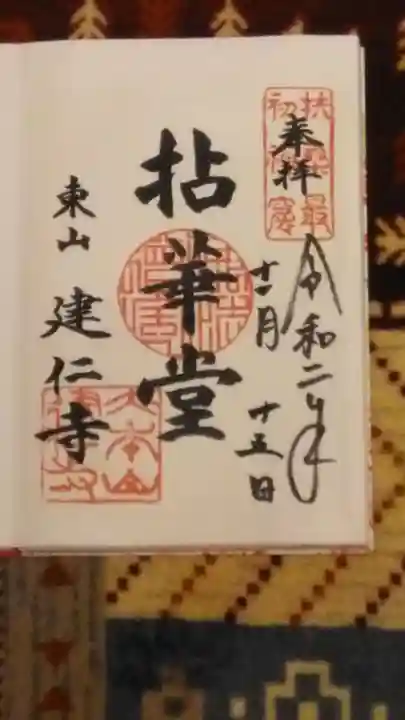 奉拝
令和二年
十一月
十五日
拈華堂
東山
建仁寺
扶桑最
初禅窟
大本山
建仁寺